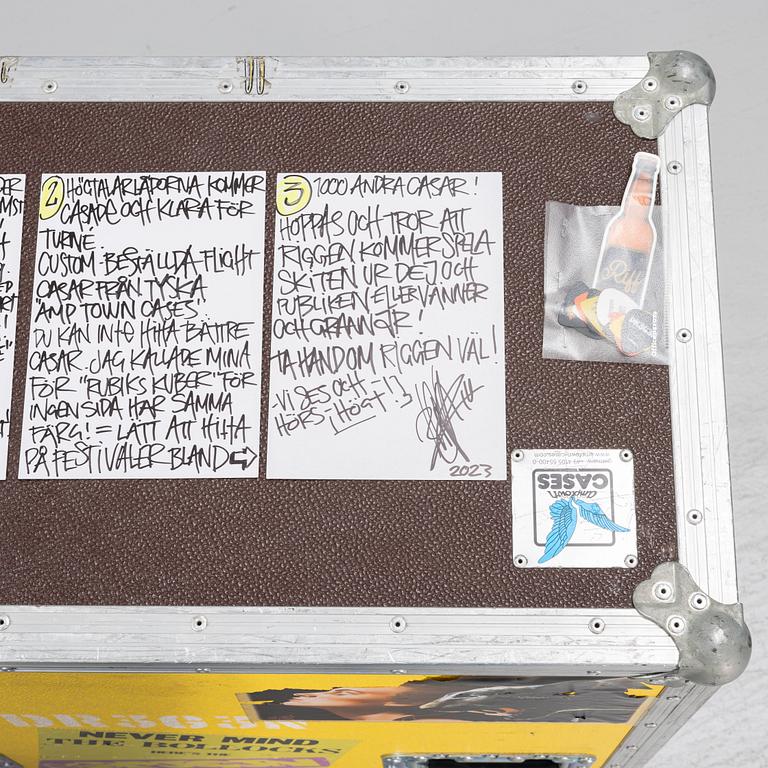 2 HÖGTALARLÅDORNA KOMMER
CASADE OCH KLARA FÖR
TURNÉ.
CUSTOM-BESTÄLLDA FLIGHT
CASAR FRÅN TYSKA
"AMP TOWN CASES".
DU KAN INTE HITTA BÄTTRE
CASAR. JAG KALLADE MINA
FÖR "RUBIKS KUBER" FÖR
INGEN SIDA HAR SAMMA
FÄRG! = LÄTT ATT HITTA
PÅ FESTIVALER BLAND
3 1000 ANDRA CASAR!
HOPPAS OCH TROR ATT
RIGGEN KOMMER SPELA
SKITEN UR DEJ OCH
PUBLIKEN ELLER VÄNNER
OCH GRANNAR!
TA HAND OM RIGGEN VÄL!
-VI SES OCH
HÖRS - HÖGT!
2023
Riff
amptown
CASES
germany +49 4105 55400-0
www.amptowncases.com
NEVER MIND
THE BOLLOCKS
HERE'S THE